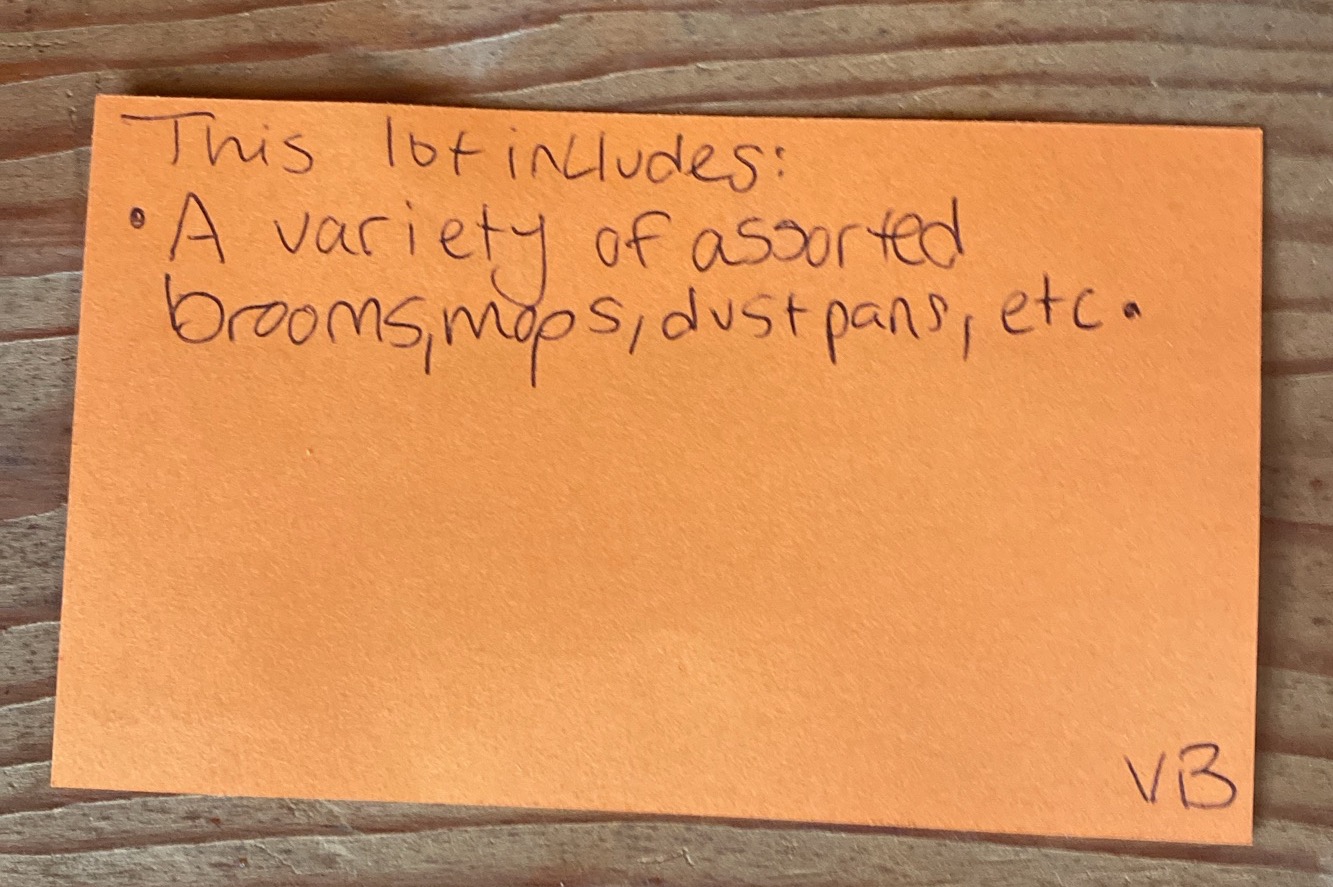 This lot includes:
• A variety of assorted
brooms, mops, dustpans, etc.
VB